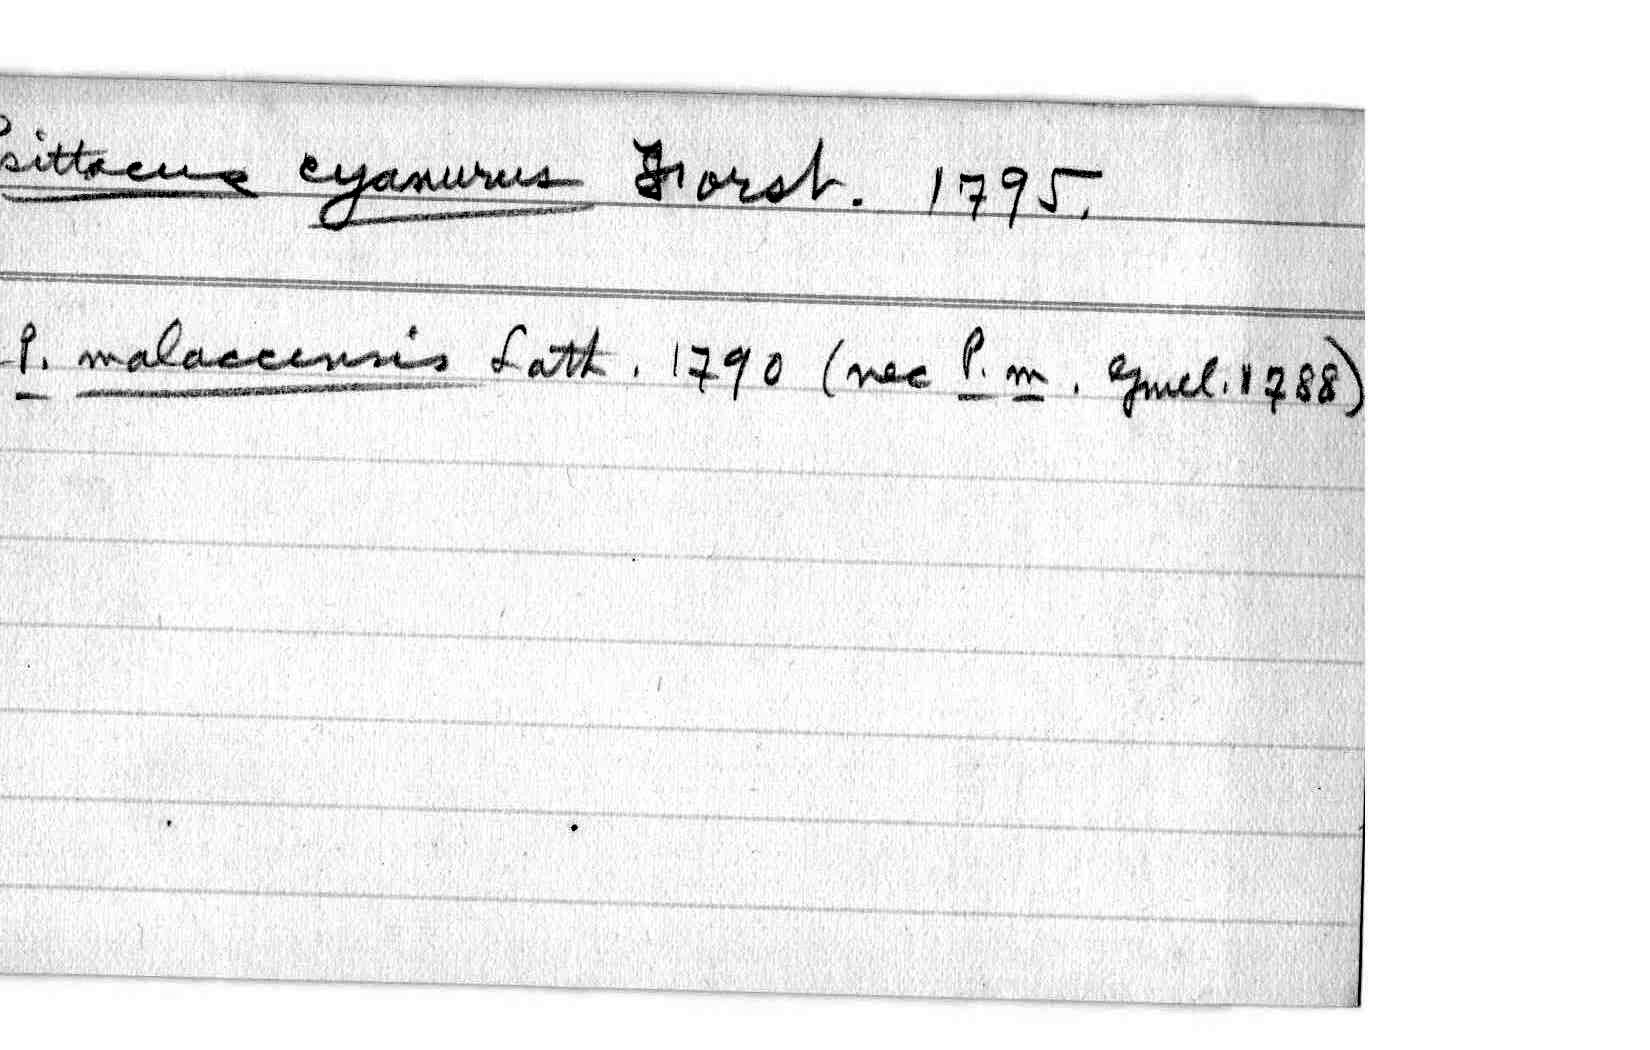 Psittacus cyanurus Forst. 1795.
P. malaccensis Lath. 1790 (nec P. m. Gmel. 1788)